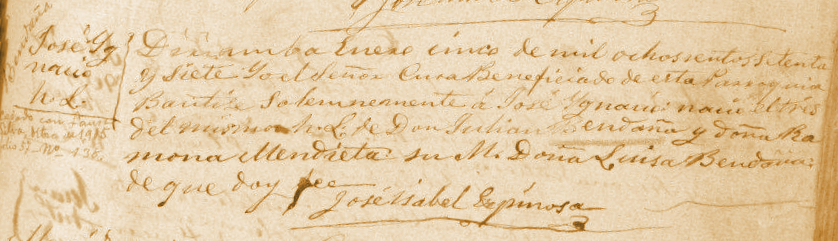 José Yg
nacio
h. L.
Diriamba Enero cinco de mil ochosentos setenta
y siete Yo el Señor Cura Beneficiado de esta Parroquia
Bautize Solemnemente á José Ygnacio: nacio el tres
del mismo h. L. de Don Julian Bendaña y doña Ra
mona Mendieta: su M. Doña Luisa Bendaña:
de que doy fee
José Isabel Espinosa